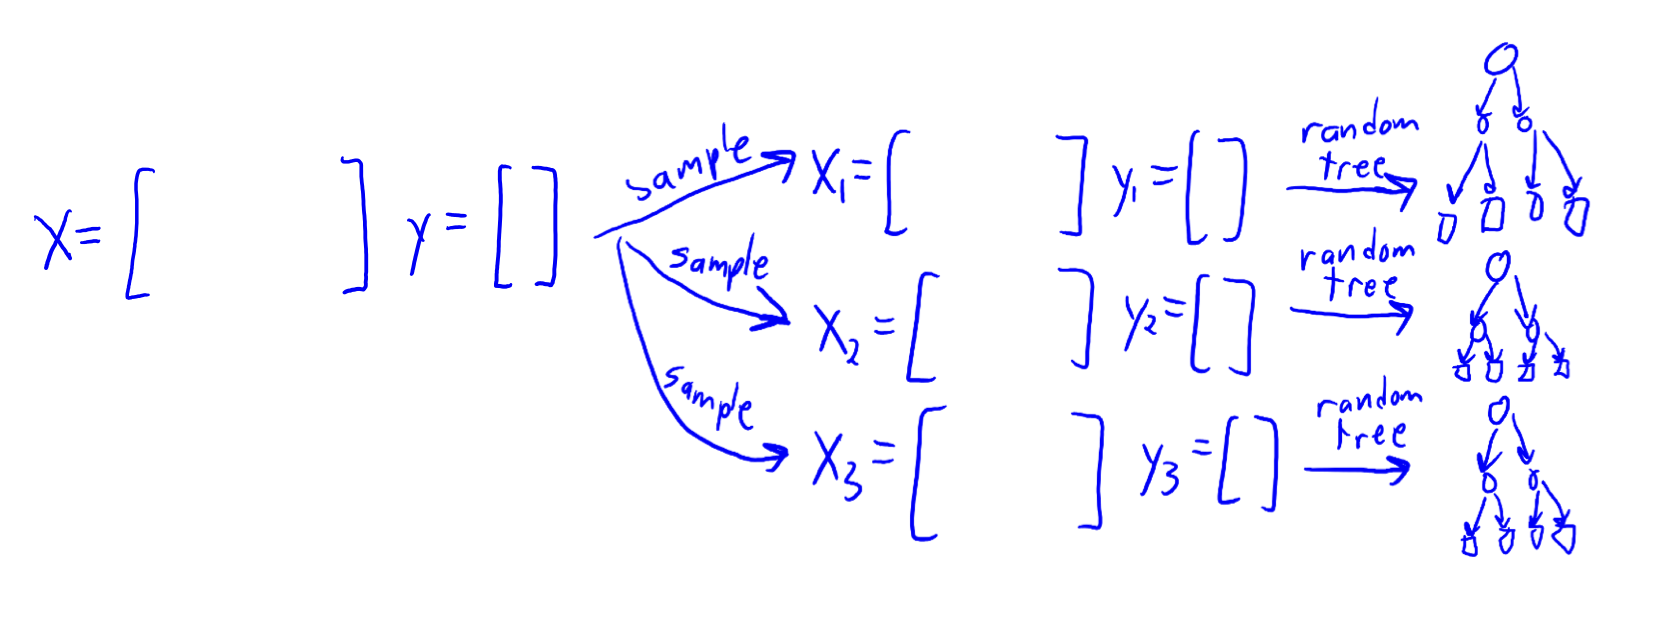 X = [ ] y = [ ]
sample X₁ = [ ] y₁ = [ ] random tree
sample X₂ = [ ] y₂ = [ ] random tree
sample X₃ = [ ] y₃ = [ ] random tree